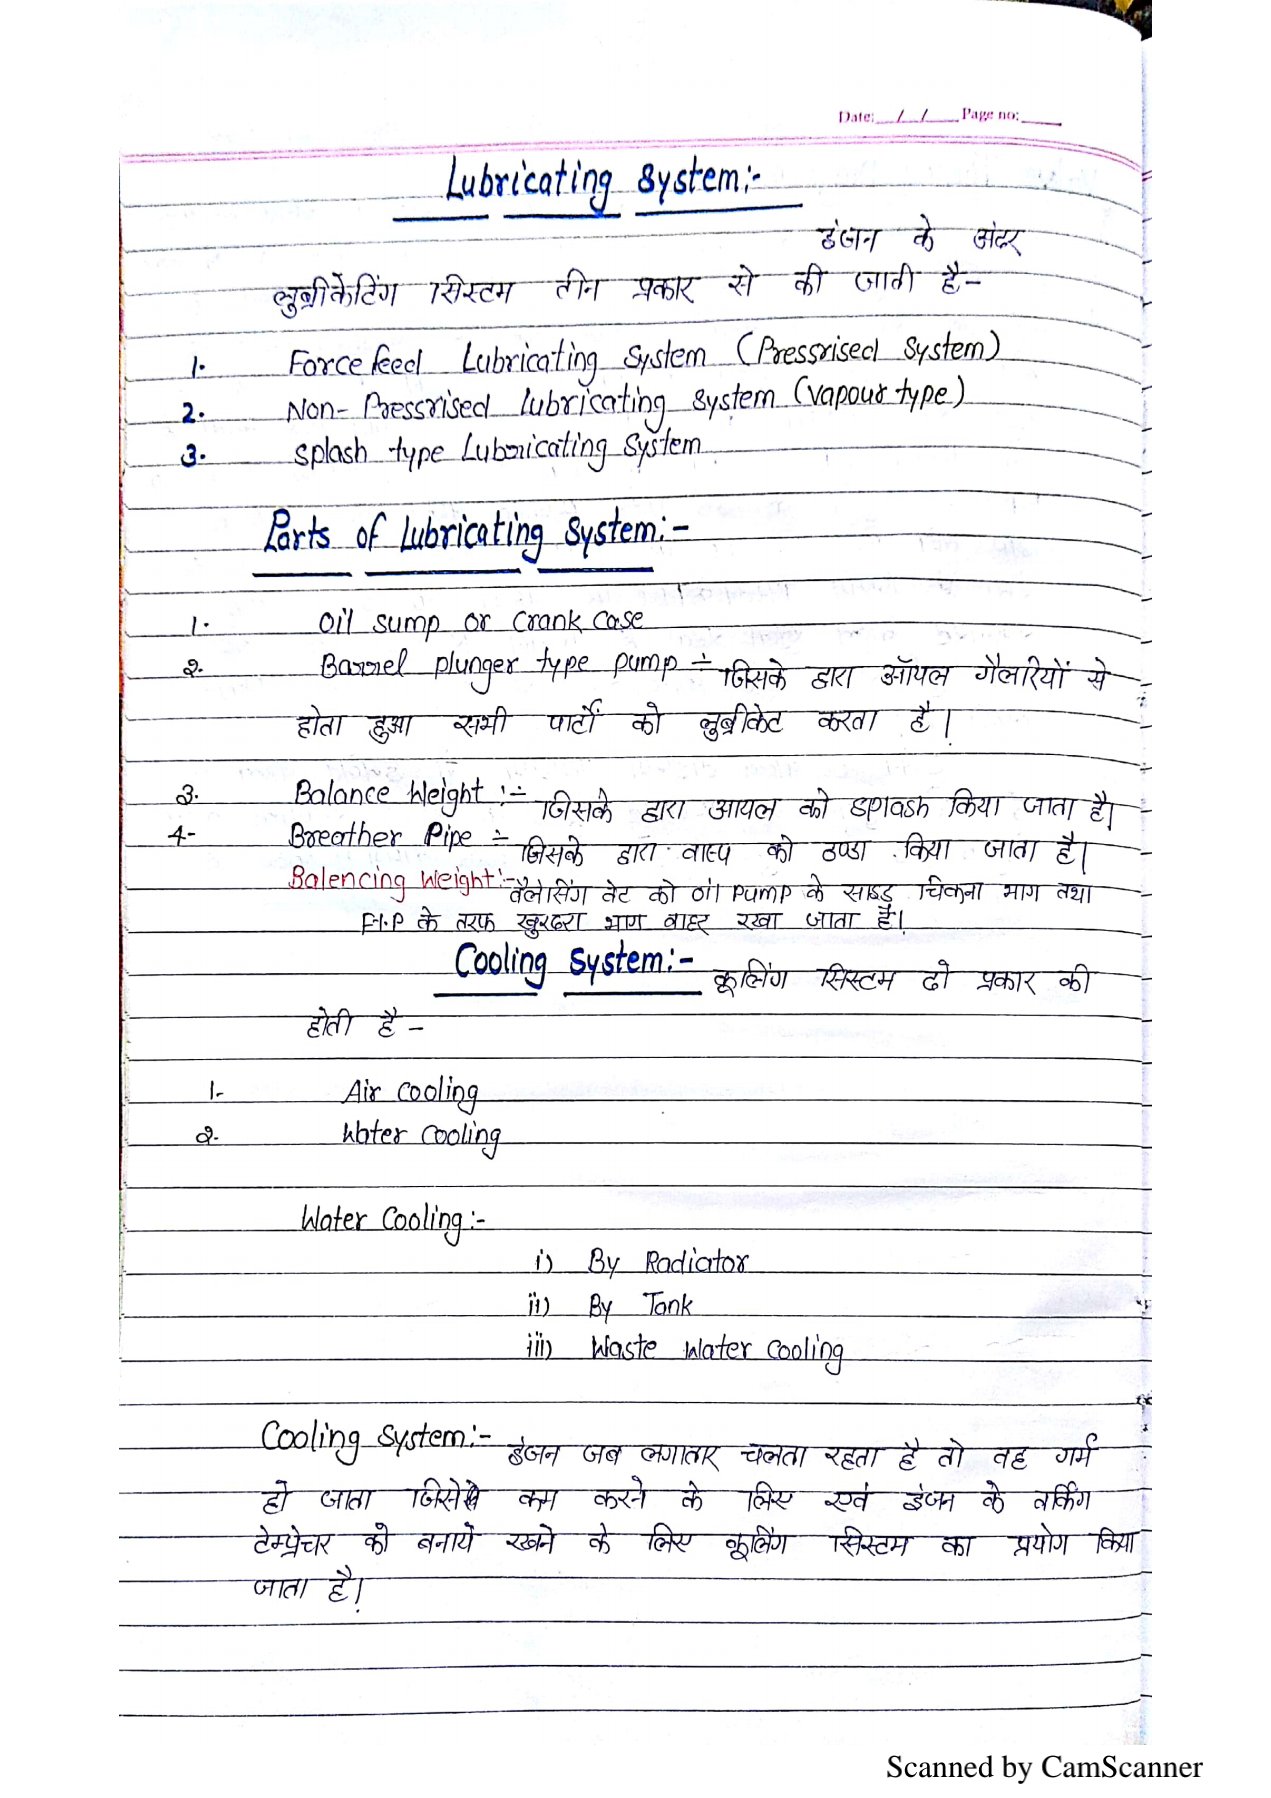 Date: / / Page no:
Lubricating System:-
इंजन के अंदर
लुब्रीकेटिंग सिस्टम तीन प्रकार से की जाती है-
1. Force feed Lubricating System (Pressrised System)
2. Non-Pressrised Lubricating System (Vapour type)
3. Splash type Lubricating System
Parts of Lubricating System:-
1. Oil sump or Crank Case
2. Barrel plunger type pump ÷ जिसके द्वारा ऑयल गैलारियों से
होता हुआ सभी पार्टों को लुब्रीकेट करता है।
3. Balance Weight :÷ जिसके द्वारा आयल को splash किया जाता है।
4- Breather Pipe ÷ जिसके द्वारा वाष्प को ठण्डा किया जाता है।
Balencing Weight:- वैलेसिंग वेट को Oil Pump के साइड चिकना भाग तथा
F.I.P के तरफ खुरदरा भाग बाहर रखा जाता है।
Cooling System:- कूलिंग सिस्टम दो प्रकार की
होती है -
1- Air Cooling
2- Water Cooling
Water Cooling:-
i) By Radiator
ii) By Tank
iii) Waste Water Cooling
Cooling System:- इंजन जब लगातार चलता रहता है तो वह गर्म
हो जाता कम करने के लिए एवं इंजन के वर्किंग
टेम्प्रेचर को बनाये रखने के लिए कूलिंग सिस्टम का प्रयोग किया
जाता है।
Scanned by CamScanner